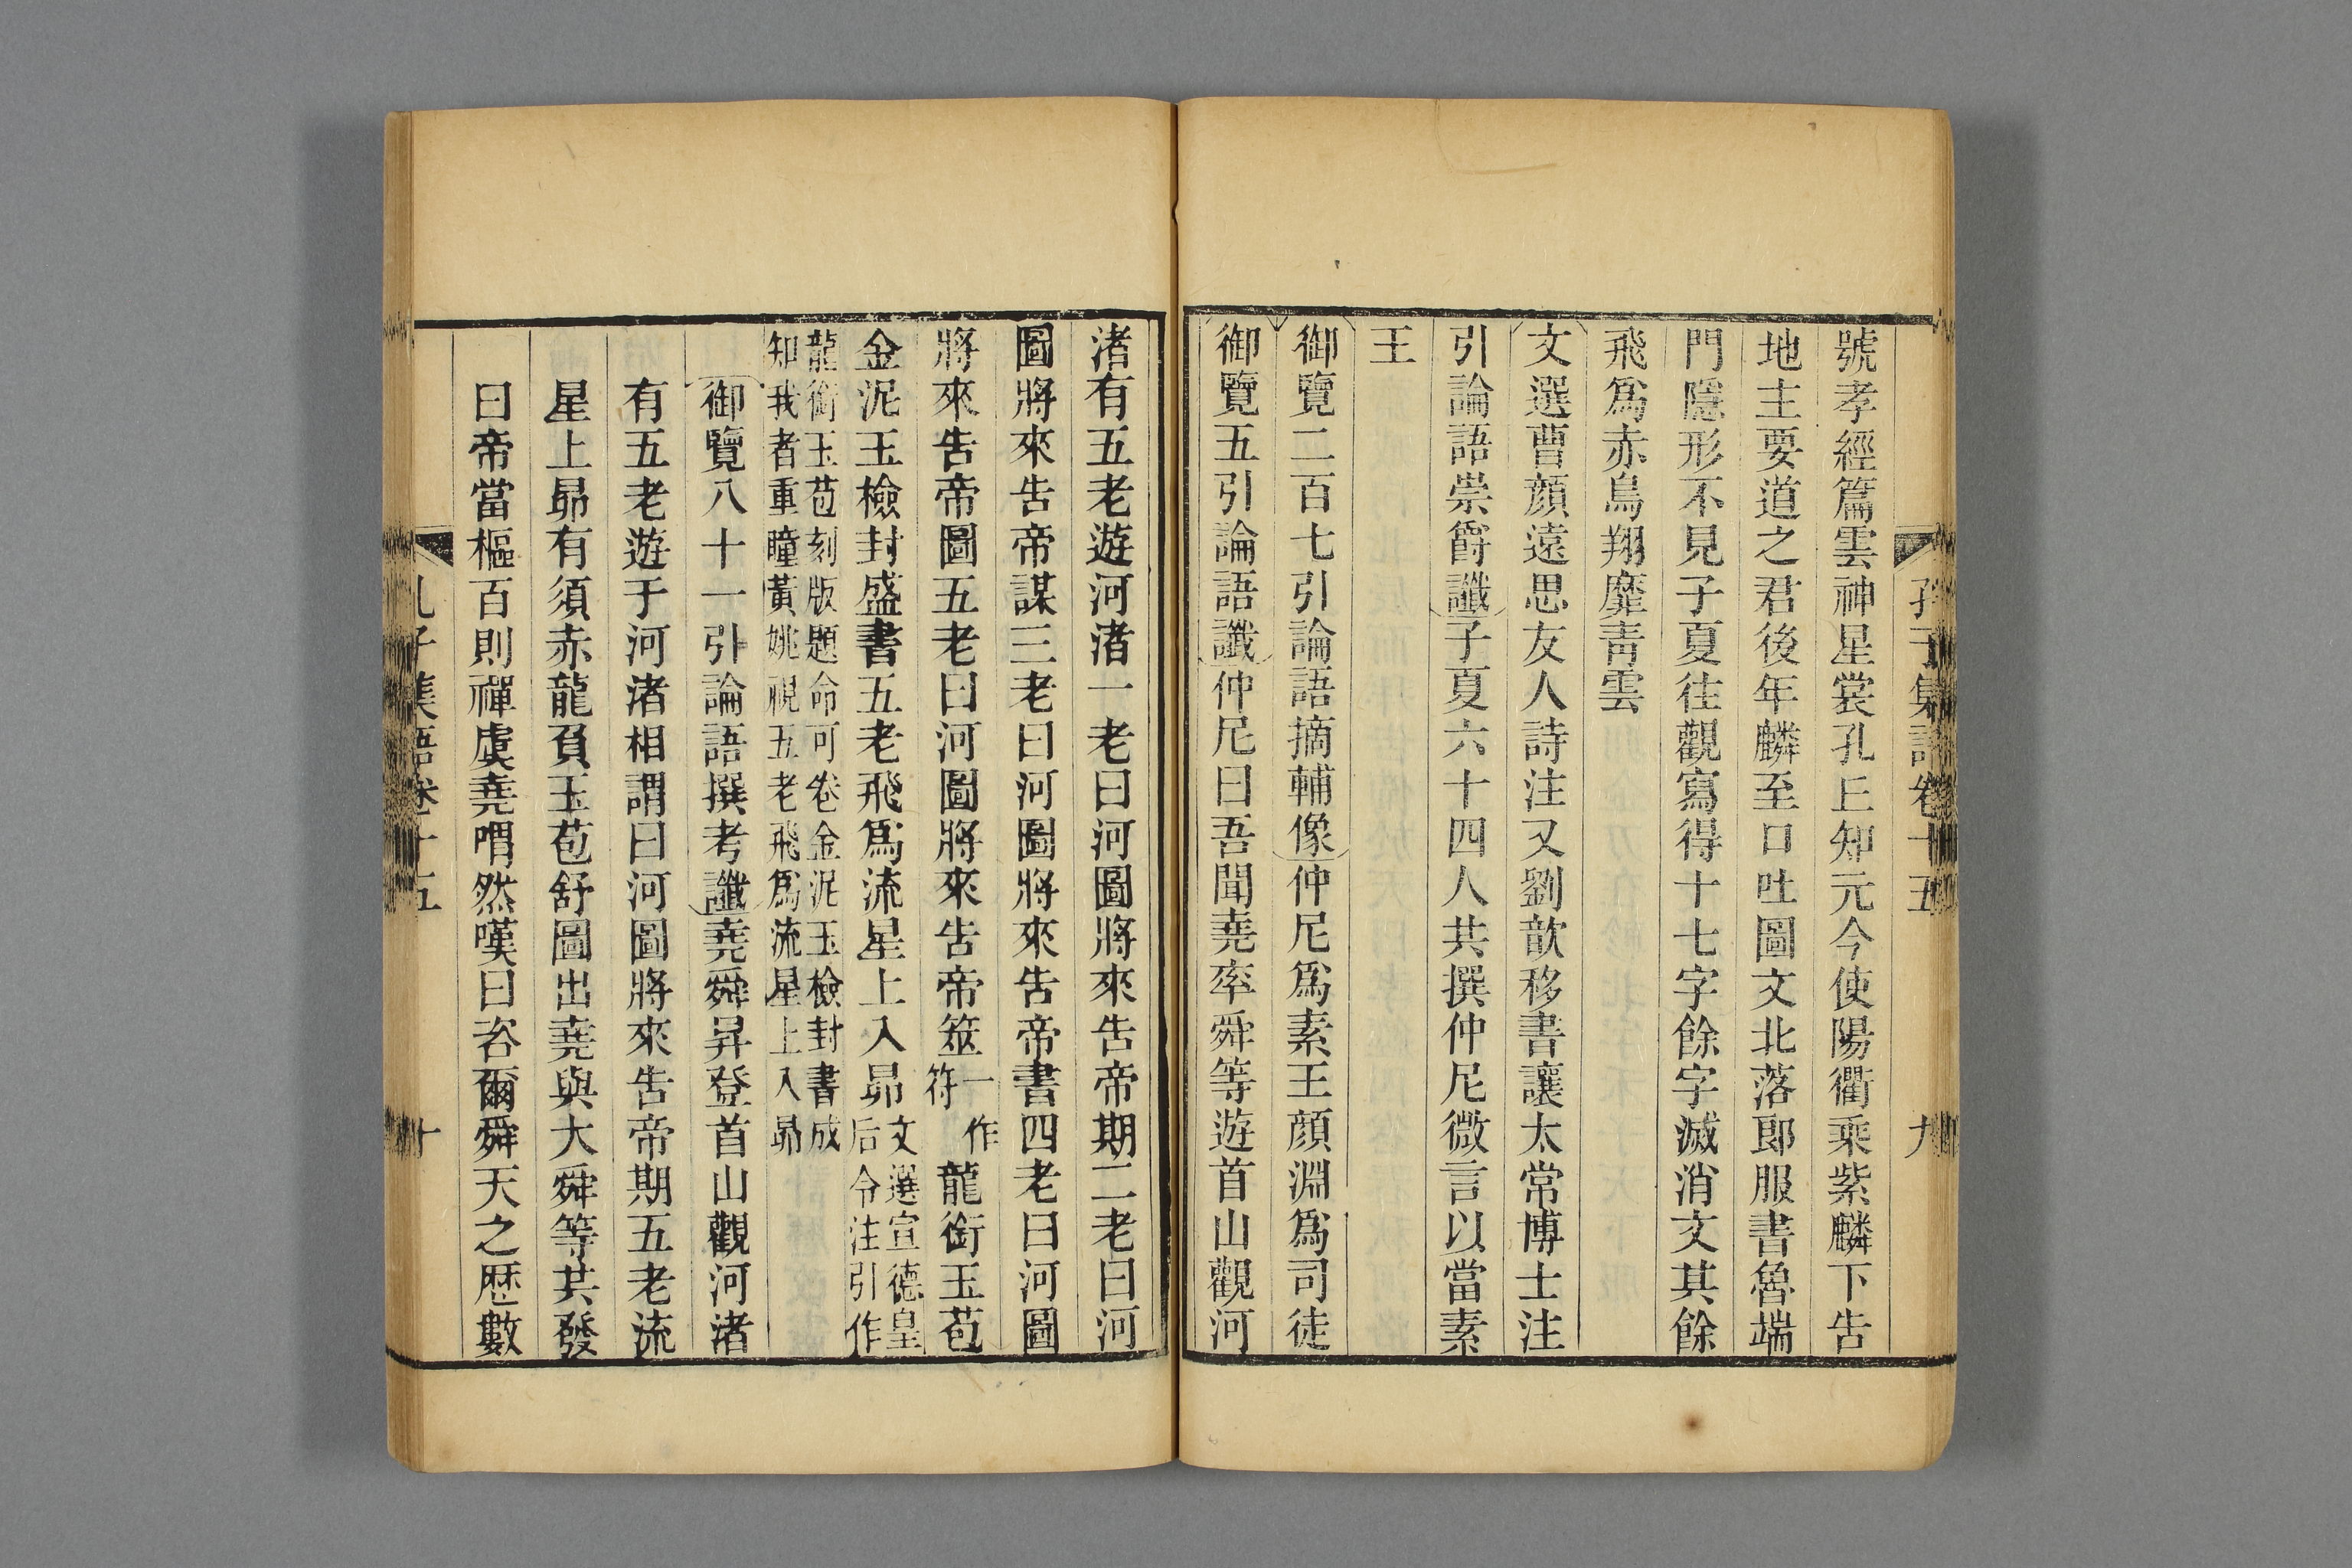 孔子集語卷十五 九
號孝經篇雲神星裳孔丘知元今使陽衢乘紫麟下告
地主要道之君後年麟至口吐圖文北落郎服書魯端
門隱形不見子夏往觀寫得十七字餘字滅消文其餘
飛爲赤鳥翔靡青雲
文選曹顏遠思友人詩注又劉歆移書讓太常博士注
引論語崇爵讖子夏六十四人共撰仲尼微言以當素
王
御覽二百七引論語摘輔像仲尼爲素王顏淵爲司徒
御覽五引論語讖仲尼曰吾聞堯率舜等遊首山觀河
渚有五老遊河渚一老曰河圖將來告帝期二老曰河
圖將來告帝謀三老曰河圖將來告帝書四老曰河圖
將來告帝圖五老曰河圖將來告帝筮一作符龍銜玉苞
金泥玉檢封盛書五老飛爲流星上入昴文選宣德皇后令注引作
龍銜玉苞刻版題命可卷金泥玉檢封書成
知我者重瞳黃姚視五老飛爲流星上入昴
御覽八十一引論語撰考讖堯舜昇登首山觀河渚
有五老遊于河渚相謂曰河圖將來告帝期五老流
星上昴有須赤龍負玉苞舒圖出堯與大舜等共發
曰帝當樞百則禪虞堯喟然嘆曰咨爾舜天之歷數
孔子集語卷十五 十